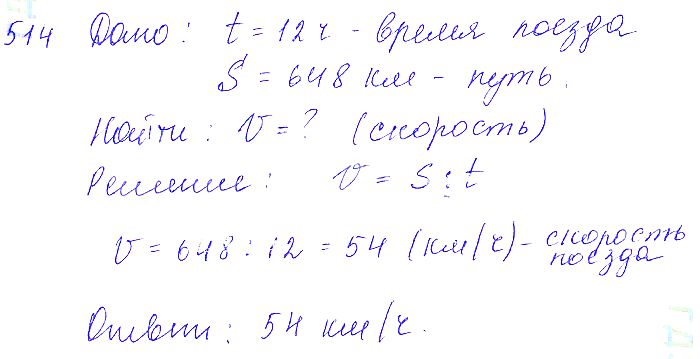 514 Дано: t = 12 ч - время поезда
S = 648 км - путь.
Найти: V = ? (скорость)
Решение: V = S : t
V = 648 : 12 = 54 (км/ч) - скорость поезда
Ответ: 54 км/ч.